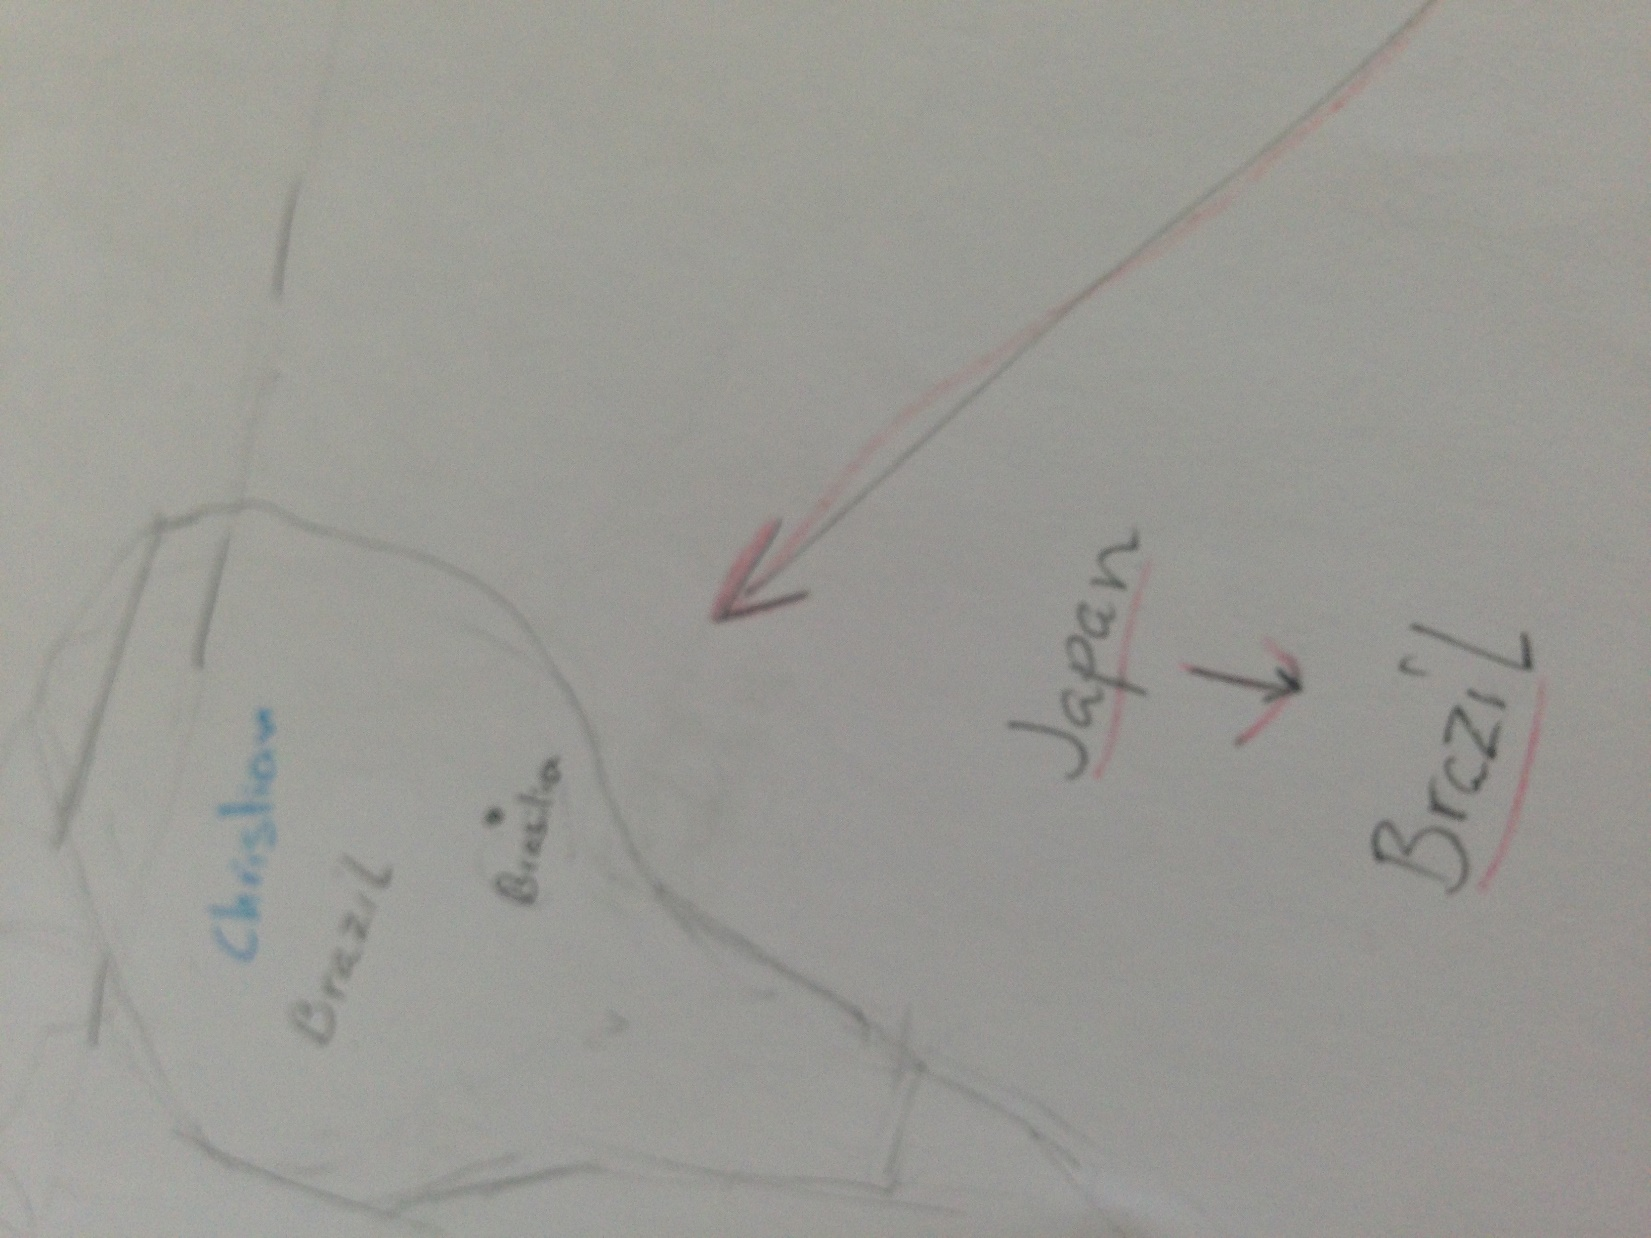 Christian
Brazil
Brasilia
Japan
↓
Brazil